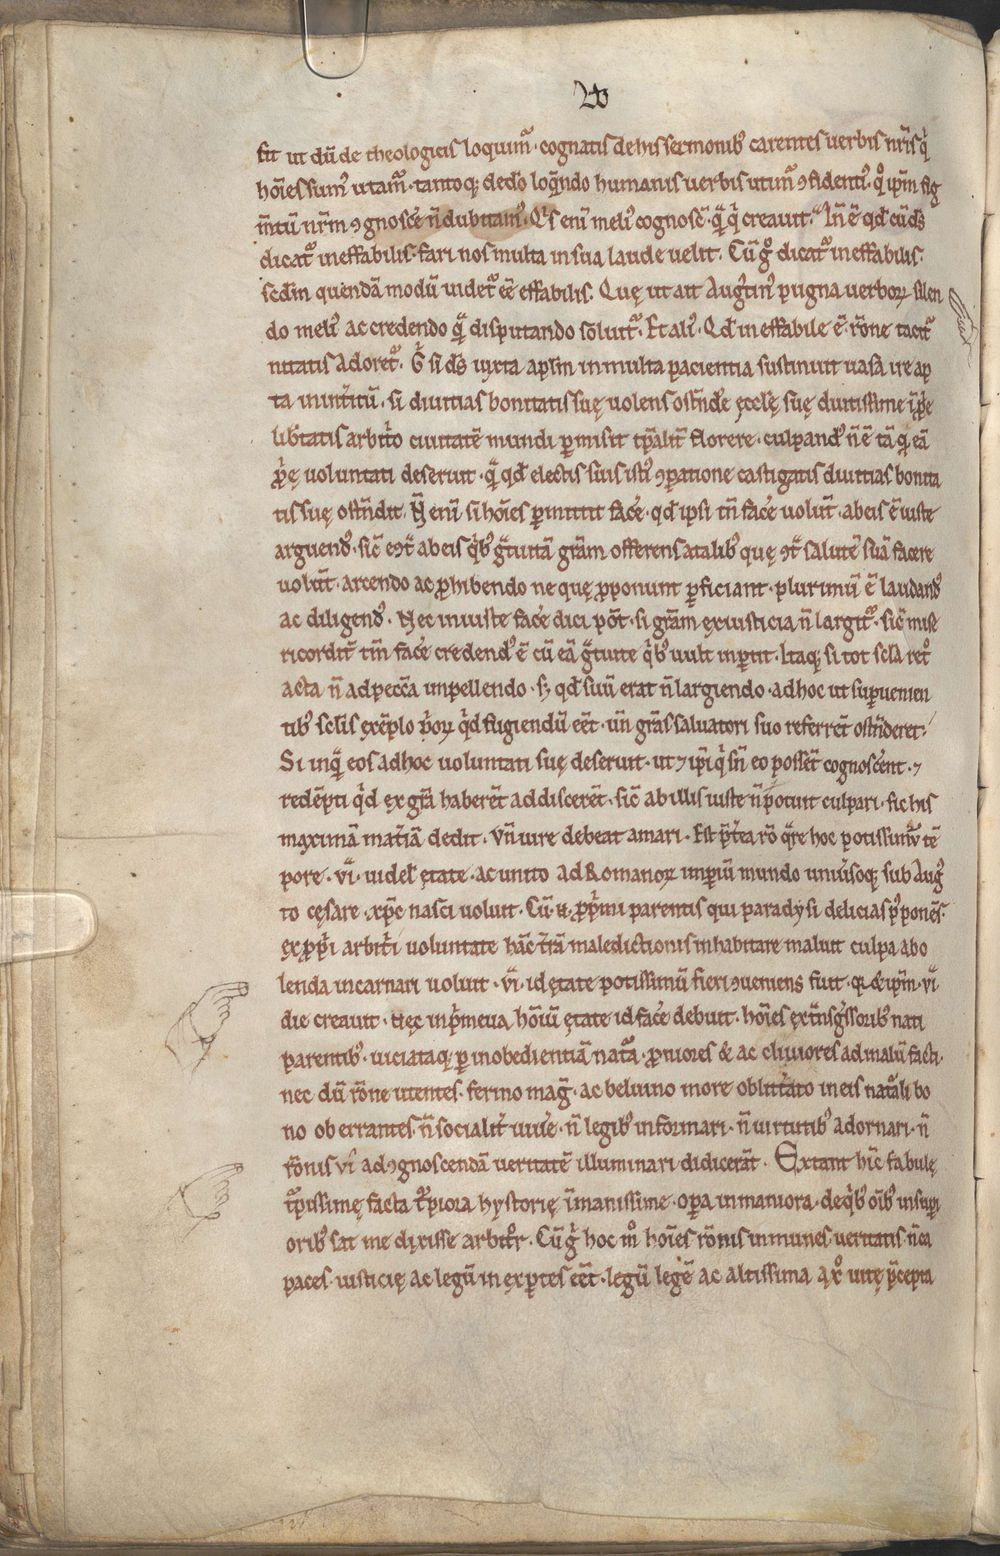 fit ut dū de theologicis loquim̄ · cognatis de his sermonibꝰ carentes uerbis nr̄is q̇
hoīes sumꝰ utam̄ · tantoqꝫ de deo loq̄ndo humanis uerbis utim̄ ꝯfidentiꝰ · qͦ ip̄m fig
m̄tū nr̄m ꝯgnosce̓ n̄ dubitamꝰ · Qͥs eni meliꝰ cognosc̄ · q̄ q̇ creauit · In̄ ē qd̄ cū dꝰ
dicat᷑ ineffabilis · fari nos multa in sua laude uelit · Cū gͦ dicat᷑ ineffabilis ·
sed in quendā modū uidet᷑ eē effabilis · Quę ut ait Augꝰtinꝰ pugna uerboꝝ silen
do meliꝰ ac credendo q̄ disputando soluit᷑ · Et aliꝰ · Qd̄ ineffabile ē · rōne tacit᷑
nitatis adoret᷑ · Gͥ si dꝰ iuxta apl̄m in multa paciencia sustinuit uasa ire ap
ta in int̓itū · si diuitias bonitatis suę uolens ostn̄de̓ ęccłę suę diutissime īp̄ꝼe
lib̓tatis arbit̓o ciuitatē mundi ꝑmisit tp̄alit̓ florere · culpandꝰ n̄ ē tā qͥ eā
ꝓp̓ę uoluntati deseruit · q̄ qd̄ electis suis istiꝰ ꝯparatione castigatis diuitias bonita
tis suę ostn̄dit · N̄ enī si hoīes ꝑmittit face̓ · qd̄ ipsi tn̄ face̓ uolūt · ab eis ē iuste
arguendꝰ · sic̄ eꝯt̄ ab eis qͥbꝰ gͣtuitā grām offerens a talibꝰ quę ꝯt̄ salutē suā facere
uolūt · arcendo ac ꝓhibendo ne quę ꝓponunt ꝑficiant · plurimū ē laudandꝰ
ac diligendꝰ · Nec iniuste face̓ dici pōt · si grām ex iusticia n̄ largit᷑ · sic̄ mise
ricordit̓ tm̄ face̓ credendꝰ ē cū eā gͣtuite qͥbꝰ uult inp̓tit · Itaqꝫ si tot sc̄la ret͛
acta n̄ ad peccā impellendo · sꝫ qd̄ suū erat n̄ largiendo · ad hoc ut supuenien
tibꝰ sc̄lis exēplo p̓oꝝ qͥd fugiendū eēt · un̄ grās saluatori suo referrēt ostn̄deret ·
Si inq̄ eos ad hoc uoluntati suę deseruit · ut ⁊ ip̄i qͥ sn̄ eo possēt cognosce̓nt · ⁊
redēpti qͥd ex grā haberēt addiscerēt · sic̄ ab illis iuste n̄ potuit culpari · sic his
maximā mat̓iā dedit · un̄ iure debeat amari · Est p̄t̓ea rō q̄re hoc potissimū tē
pore · vi̓ · uidel̄ ętate · ac unito ad Romanoꝝ imꝑiū mundo uniu̓soqꝫ sub Augꝰ
to cęsare xp̄c nasci uoluit · Cū .n. ꝓp̓ p̓mi parentis qui paradysi delicias p̓ponēs ·
ex ꝓp̓i arbit̓i uoluntate hāc t̓rā maledictionis inhabitare maluit culpa abo
lenda incarnari uoluit · vi̓ · id ętate potissimū fieri ꝯueniens fuit · qꝛ & ip̄m · vi̓
die creauit · Nec in p̓meua hoīū ętate id face̓ debuit · hoīes ex tn̄sg̓ssoribꝰ nati
parentibꝰ · uiciataqꝫ ꝑ inobedientiā nat᷑a · ꝓniores & ac cliuiores ad malū facti ·
nec dū rōne utentes · ferino mag̓ · ac beluino more oblitt̓ato in eis nat᷑ali bo
no oberrantes · n̄ socialit̓ uiue̓ · n̄ legibꝰ informari · n̄ uirtutibꝰ adornari · n̄
rōnis vi ad ꝯgnoscendā ueritatē illuminari didicer̄t · Extant hīc fabulę
t᷑pissimę facta t᷑piora hystorię īmanissime · oꝑa inmaniora · de qͥbꝰ oībꝰ in suꝑi
oribꝰ sat me dixisse arbitͦr · Cū gͥ hoc mͦ hoīes rōnis inmunes ueritatis n̄ ca
paces · iusticię ac legū inexꝑtes eēt · legū legē ac altissima aꝝ uitę p̄cepta